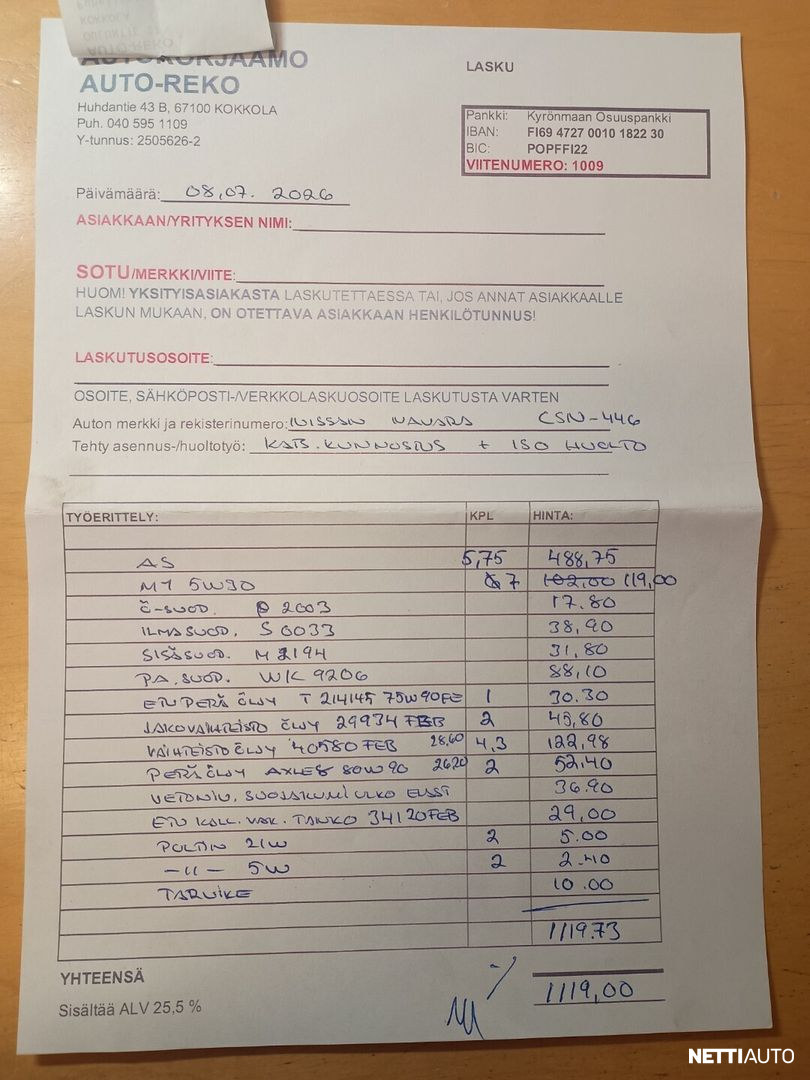 AUTOKORJAAMO
AUTO-REKO
Huhdantie 43 B, 67100 KOKKOLA
Puh. 040 595 1109
Y-tunnus: 2505626-2
LASKU
Pankki: Kyrönmaan Osuuspankki
IBAN: FI69 4727 0010 1822 30
BIC: POPFFI22
VIITENUMERO: 1009
Päivämäärä: 08,07. 2026
ASIAKKAAN/YRITYKSEN NIMI:
SOTU/MERKKI/VIITE:
HUOM! YKSITYISASIAKASTA LASKUTETTAESSA TAI, JOS ANNAT ASIAKKAALLE
LASKUN MUKAAN, ON OTETTAVA ASIAKKAAN HENKILÖTUNNUS!
LASKUTUSOSOITE:
OSOITE, SÄHKÖPOSTI-/VERKKOLASKUOSOITE LASKUTUSTA VARTEN
Auton merkki ja rekisterinumero: NISSAN NAVARA CSN-446
Tehty asennus-/huoltotyö: KATS.KUNNOSTUS + ISO HUOLTO
TYÖERITTELY: KPL HINTA:
AS 5,75 488,75
M1 5W30 7 102.00 119,00
Ö-SUOD. P 2003 17.80
ILMASUOD. S 0033 38,90
SISÄSUOD. M 2194 31,80
PA.SUOD. WK 9206 88,10
ETUPERÄ ÖLJY T 214145 75W90FE 1 30.30
JAKOVAIHTEISTO ÖLJY 29934 FEB 2 45,80
VAIHTEISTO ÖLJY 40580 FEB 28,60 4,3 122,98
PERÄ ÖLJY AXLE8 80W90 26,20 2 52.40
VETONIV. SUOJAKUMI ULKO 36.90
ETU KALL. VAK. TANKO 34120FEB 29,00
POLTIN 21W 2 5.00
-11- 5W 2 2.40
TARVIKE 10.00
1119.73
YHTEENSÄ 1119,00
Sisältää ALV 25,5 %
NETTIAUTO